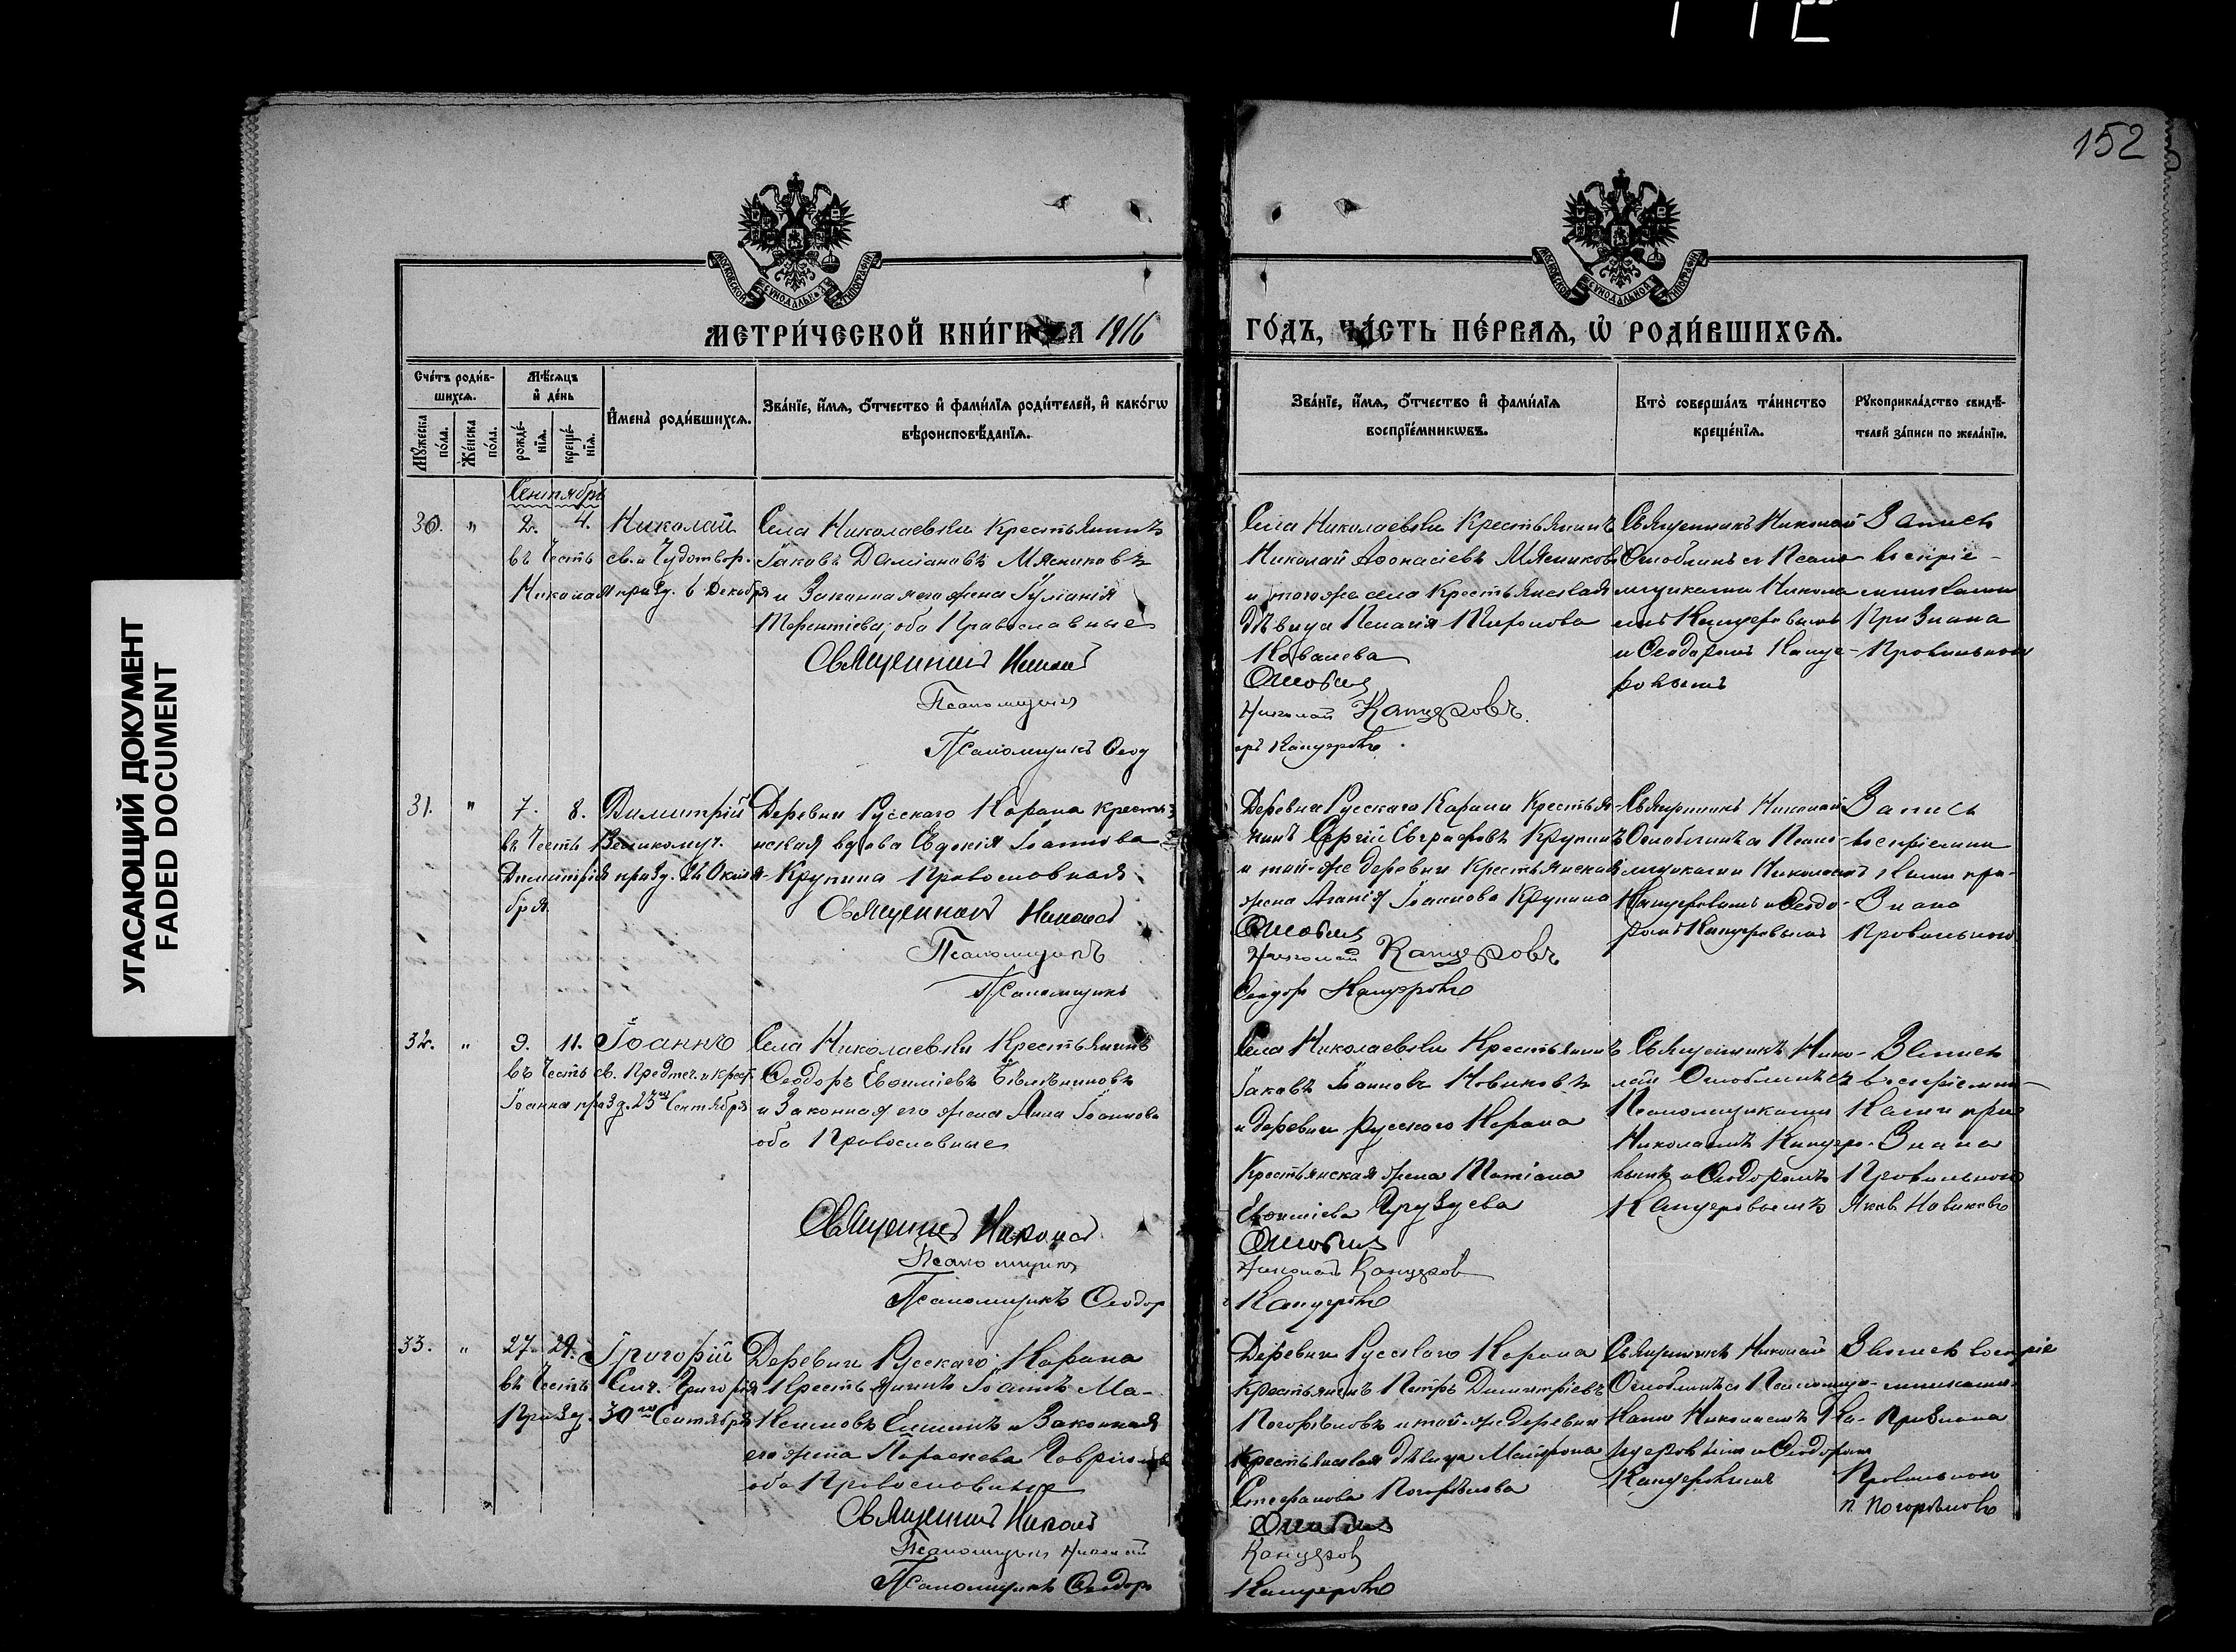 152
УГАСАЮЩИЙ ДОКУМЕНТ
FADED DOCUMENT
МЕТРИ́ЧЕСКОЙ КНИ́ГИ ЗА 1916
ГО́ДЪ, ЧА́СТЬ ПЕ́РВАѦ, Ѡ РОДИ́ВШИХСѦ.
Сче́тъ роди́в-
шихсѧ.
Мѣ́сѧцъ
и҆ де́нь
Мꙋ́жеска
по́ла.
Же́нска
по́ла.
рожде́-
нїѧ.
креще́-
нїѧ.
И҆мена̀ роди́вшихсѧ.
Зва́нїе, и҆́мѧ, ѻ҆́тчество и҆ фами́лїѧ роди́телей, и҆ како́гѡ
вѣроисповѣ́данїѧ.
Зва́нїе, и҆́мѧ, ѻ҆́тчество и҆ фами́лїѧ
воспрїе́мникѡвъ.
Кто̀ соверша́лъ та́инство
креще́нїѧ.
Рꙋкоприкла́дство свидѣ́-
телей за́писи по жела́нїю.
Сентябрь
30. " 2. 4. Николай
въ Честь св. и Чудотвор.
Николая празд. 6 Декабря
Села Николаевки Крестьянинъ
Іаковъ Даміановъ Мясниковъ
и Законная его жена Іуліанія
Терентіева, оба Православные
Священникъ Николай
Псаломщикъ
Псаломщикъ Ѳеод
Села Николаевки Крестьянинъ
Николай Аѳонасіевъ Мясниковъ
и того-же села Крестьянская
дѣвица Пелагія
Ковалева
Николай Канцеровъ.
ръ Канцеровъ.
Священникъ Николай
съ Псало-
мщиками Никола-
емъ Канцеровымъ
и Ѳеодоромъ Канце-
ровымъ
Запись
воспріе-
мниками
Признана
Правильной
31. " 7. 8. Димитрій
въ Честь Великомуч.
Димитрія празд. 26 Октя-
бря.
Деревни Русскаго Карана кресть-
янская вдова Евдокія Іоаннова
Крупина Православная
Священникъ Николай
Псаломщикъ
Псаломщикъ
Деревни Русскаго Карана Крестья-
нинъ Сергій Евграфовъ Крупинъ
и той-же деревни Крестьянская
жена Агапія Іоаннова Крупина
Николай Канцеровъ
Ѳеодоръ Канцеровъ
Священникъ Николай
съ Псало-
мщиками Николаемъ
Канцеровымъ и Ѳеодо-
ромъ Канцеровымъ
Запись
воспріемни
ками при-
знана
правильной
32. " 9. 11. Іоаннъ
въ Честь св. Предтеч. и Крест.
Іоанна празд. 23го Сентября
Села Николаевки Крестьянинъ
Ѳеодоръ Евѳиміевъ
и Законная его жена Анна Іоаннова
оба Православные
Священникъ Николай
Псаломщикъ
Псаломщикъ Ѳеодор
Села Николаевки Крестьянинъ
Іаковъ Іоанновъ Новиковъ
и деревни Русскаго Карана
Крестьянская жена Татіана
Евѳиміева Груздева
Николай Канцеров
Канцеровъ
Священникъ Нико-
лай съ
Псаломщиками
Николаемъ Канцеро-
вымъ и Ѳеодоромъ
Канцеровымъ
Запись
воспріемни-
ками при-
знана
Правильной
Яков Новиковъ
33. " 27. 29. Григорій
въ Честь Свщ. Григорія
Празд. 30го Сентября
Деревни Русскаго Карана
Крестьянинъ Іоаннъ Ма-
и Законная
его жена Параскева Гавріилова
оба Православные
Священникъ Николай
Псаломщикъ Николай
Псаломщикъ Ѳеодоръ
Деревни Русскаго Карана
Крестьянинъ Петръ Димитріевъ
Погорѣловъ и той-же деревни
Крестьянская дѣвица
Стефанова Погорѣлова
Канцеров
Канцеровъ
Священникъ Николай
съ Псаломщи-
ками Николаемъ Ка-
нцеровымъ и Ѳеодоромъ
Канцеровымъ
Запись воспріе
мниками
Признана
Правильной
П. Погорѣловъ